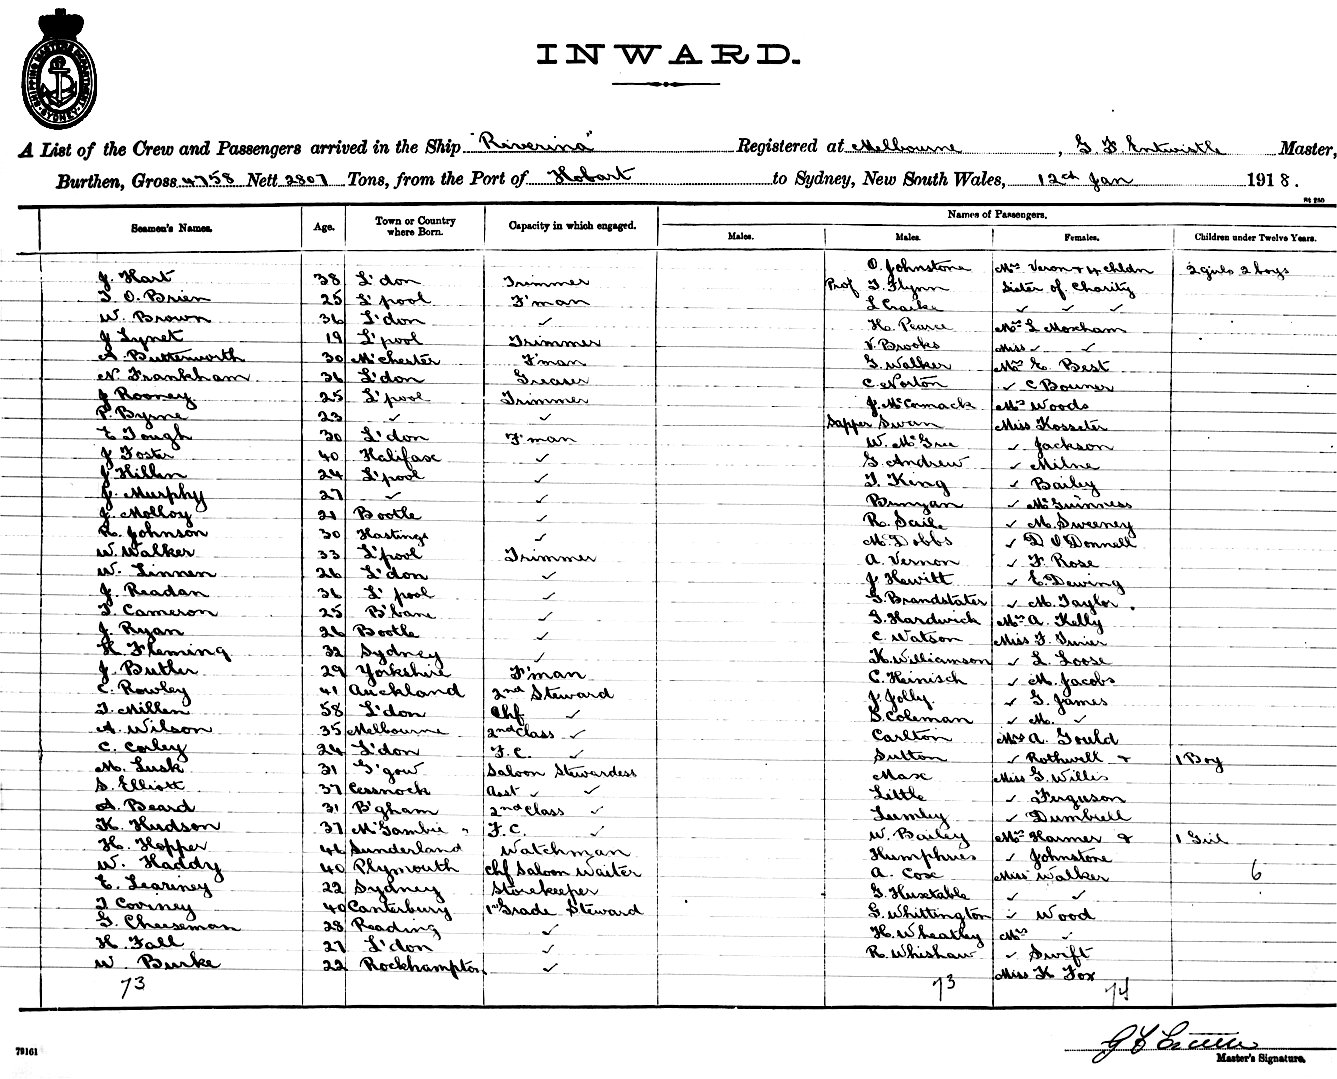 SHIPPING MASTERS DEPARTMENT SYDNEY
INWARD.
A List of the Crew and Passengers arrived in the Ship "Riverina" Registered at Melbourne, G. F. Entwistle Master,
Burthen, Gross 4758 Nett 2807 Tons, from the Port of Hobart to Sydney, New South Wales, 12th Jan 1918.
Names of Passengers.
Seamen's Names. Age. Town or Country where Born. Capacity in which engaged. Males. Males. Females. Children under Twelve Years.
J. Hart 38 L'don Trimmer O. Johnstone Mrs Veron & 4 chldn 2 girls 2 boys
T. O. Brien 25 L'pool F'man Prof T. Flynn Sister of Charity
W. Brown 36 L'don ✓ L Clarke ✓ ✓ ✓
J Lynet 19 L'pool Trimmer H. Pearce Mrs L Moxham
A Butterworth 30 M'chester F'man V. Brooks Miss ✓ ✓
N. Frankham 36 L'don Greaser G. Walker Mrs E. Best
J Rooney 25 L'pool Trimmer C Norton ✓ C Bouner
P. Byrne 23 ✓ ✓ J. McCormack Mrs Woods
E Tough 30 L'don F'man Sapper Swan Miss Kosseter
J Foster 40 Halifax ✓ W. McGree ✓ Jackson
J Hillen 24 L'pool ✓ G. Andrew ✓ Milne
J. Murphy 27 ✓ ✓ T. King ✓ Bailey
J. Molloy 21 Bootle ✓ Bunyan ✓ McGuinness
R. Johnson 30 Hastings ✓ R. Saile ✓ M. Sweeney
W. Walker 33 L'pool Trimmer M. Dobbs ✓ D O'Donnell
W. Linnen 26 L'don ✓ A. Vernon ✓ F. Rose
J. Readan 36 L'pool ✓ J Hewitt ✓ E. Dewing
T. Cameron 25 B'bane ✓ G. Brandstater ✓ M. Taylor.
J. Ryan 26 Bootle ✓ G. Hardwick Mrs A. Kelly
H Fleming 32 Sydney ✓ C. Watson Miss F.
J. Butler 29 Yorkshire F'man K. Williamson ✓ L. Loose
C. Rowley 41 Auckland 2nd Steward C. Heinisch ✓ M. Jacobs
T. Millen 58 L'don Chf ✓ J Jolly ✓ G. James
A. Wilson 35 Melbourne 2nd Class ✓ S. Coleman ✓ M. ✓
C. Corley 24 L'don F.C. ✓ Carlton Mrs A. Gould
M. Lusk 31 G'gow Saloon Stewardess Sutton ✓ Rothwell & 1 Boy
S. Elliott 37 Cessnock Asst ✓ ✓ Max Miss G. Willis
A. Beard 31 B'gham 2nd Class ✓ Little ✓ Ferguson
K. Hudson 37 Mt Gambie F.C. ✓ Lumley ✓ Dumbrell
H. Hopper 46 Sunderland Watchman W. Bailey Mrs Harmer & 1 Girl
W. Haddy 40 Plymouth Chf Saloon Waiter Humphries ✓ Johnstone
E. Learney 22 Sydney Storekeeper A. Cox Miss Walker 6
T Coviney 40 Canterbury 1st Grade Steward G. Huxtable ✓ ✓
G. Cheeseman 28 Reading ✓ G. Whittington ✓ Wood
H. Fall 27 L'don ✓ H. Wheatley Mrs ✓
W. Burke 22 Rockhampton ✓ R. Whishaw ✓ Swift
Miss K Fox
73 73 74
79161
Master's Signature.